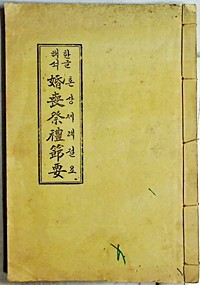 한글
해석
혼상제례절요
婚喪祭禮節要